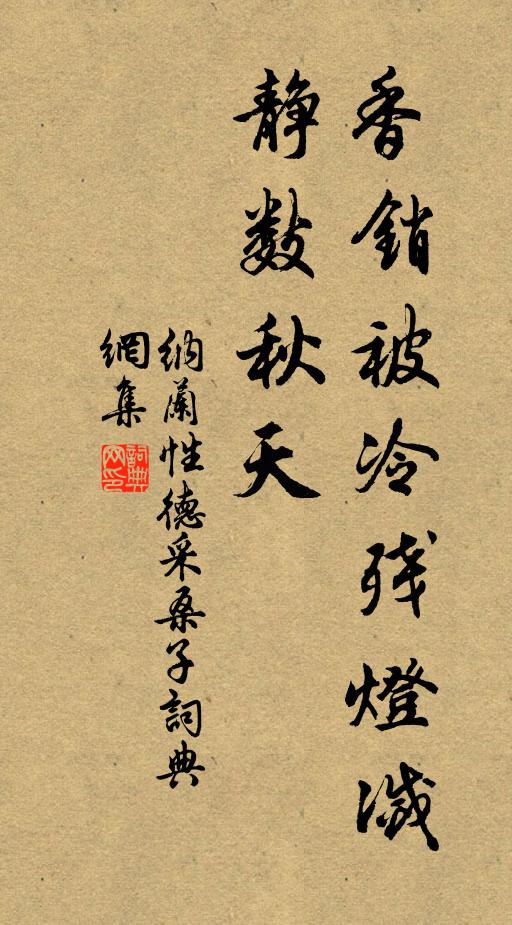 香銷被冷残燈滅
静數秋天
納蘭性德采桑子詞典
網集
詞典網印